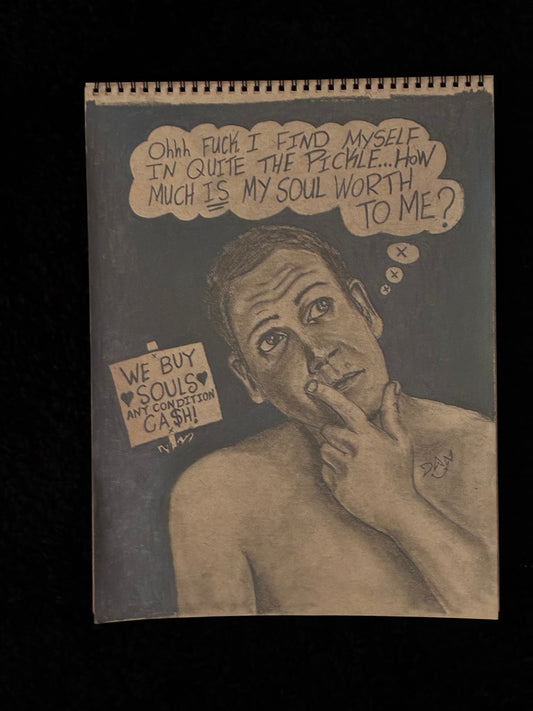 Ohhh FUCK I FIND MYSELF
IN QUITE THE PICKLE...HOW
MUCH IS MY SOUL WORTH
TO ME?
WE BUY
♥ SOULS ♥
ANY CONDITION
CA$H!
DAN